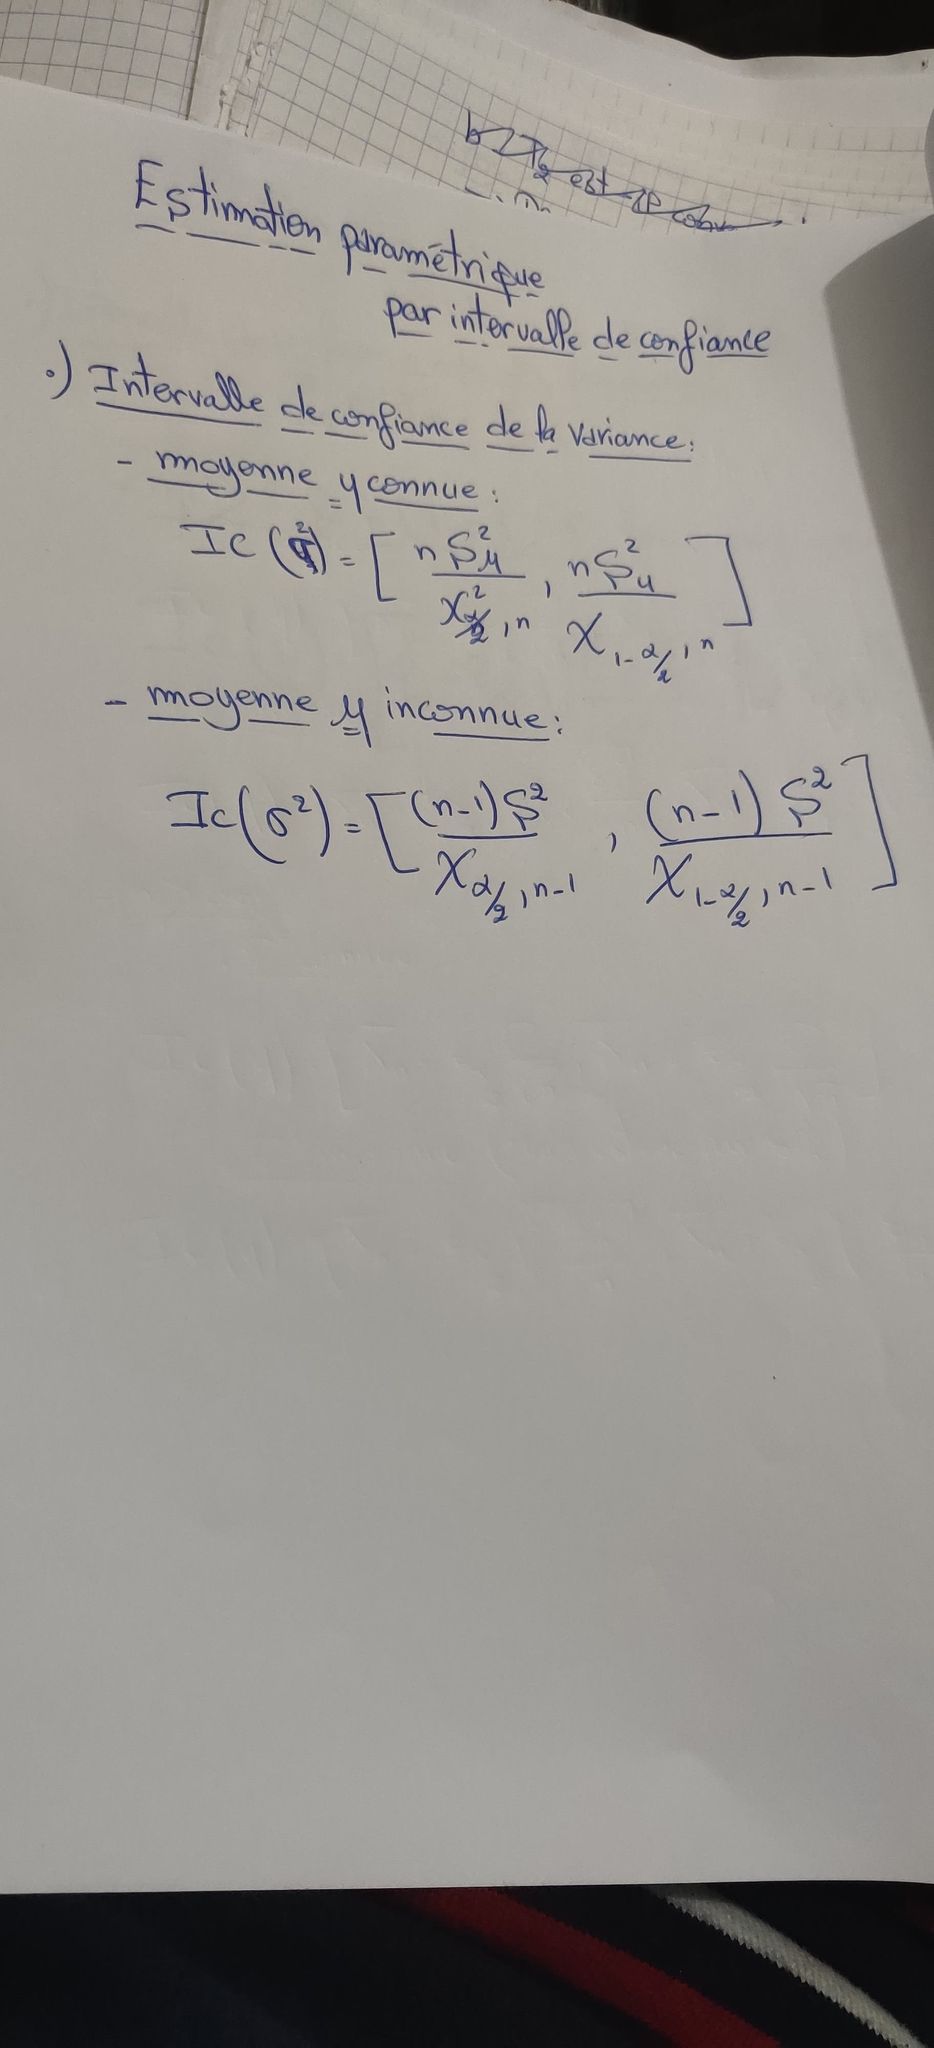 b) T₂ est
Estimation paramétrique
par intervalle de confiance
.) Intervalle de confiance de la variance:
- moyenne μ connue:
IC (σ²) = [ nS²μ / χ²α/2, n , nS²μ / χ 1-α/2, n ]
- moyenne μ inconnue:
Ic(σ²) = [ (n-1)S² / χ α/2, n-1 , (n-1) S² / χ 1-α/2, n-1 ]